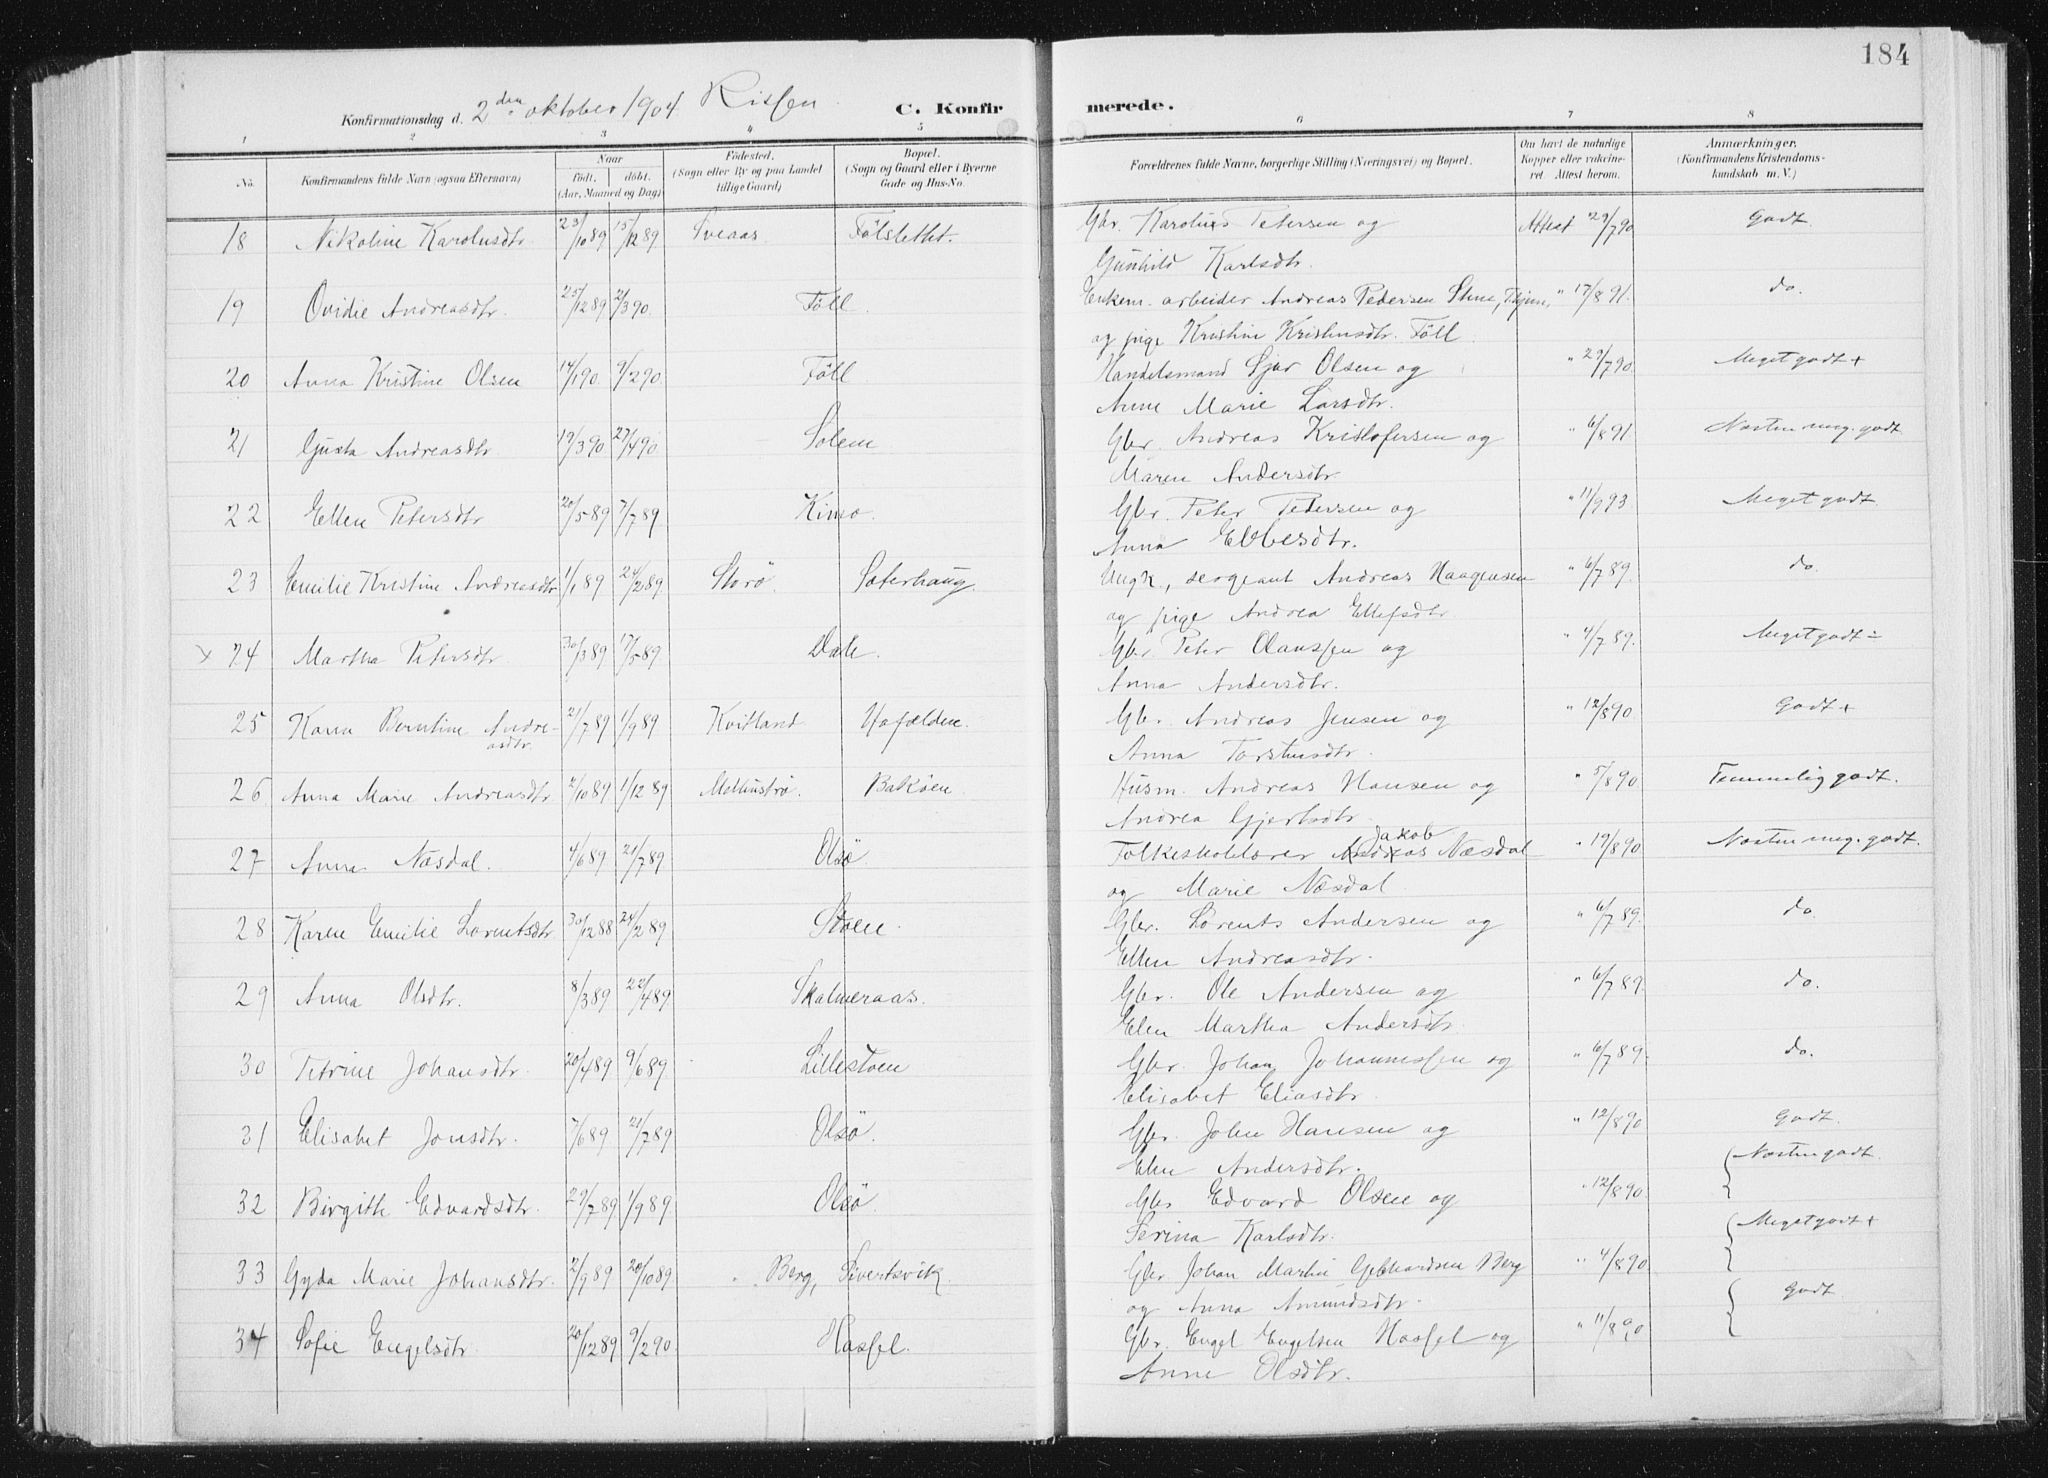 184
Konfirmationsdag d. 2den oktober 1904. Rissen
C. Konfirmerede.
1 2 3 4 5 6 7 8
No. Konfirmandens fulde Navn (ogsaa Efternavn) Naar født. døbt. (Aar, Maaned og Dag) Fødested. (Sogn eller By og paa Landet tillige Gaard) Bopæl. (Sogn og Gaard eller i Byerne Gade og Hus-No. Forældrenes fulde Navne, borgerlige Stilling (Næringsvei) og Bopæl. Om havt de naturlige Kopper eller vakcineret. Attest herom. Anmerkninger. (Konfirmandens Kristendomskundskab m. V.)
18 Nikoline Karolusdtr. 23/10 89 15/12 89 Sveaas Fölslettet. Gbr. Karolius Petersen og Attest 29/7 90 Godt.
Gunhild Karlsdtr.
19 Ovidie Andreasdtr. 25/12 89 2/3 90. Föll. Enkem. arbeider Andreas Pedersen " 17/8 91. do.
og pige Kristine Kristensdtr. Föll.
20 Anna Kristine Olsen 14/1 90. 9/2 90. Föll Handelsmand Sjur Olsen og " 29/7 90. Meget godt +
Anne Marie Larsdtr.
21 Gusta Andreasdtr 19/3 90 27/4 90. Solem Gbr. Andreas Kristofersen og " 6/8 91 Næsten meg. godt.
Maren Andersdtr.
22 Ellen Petersdtr 20/5 89 7/7 89 Kimo. Gbr. Peter Pedersen og " 11/9 93 Meget godt.
Anna Ebbesdtr.
23 Emilie Kristine Andreasdtr 1/1 89 24/2 89. Storö. Sæterhaug. Ungk., sergeant Andreas Haagensen " 6/7 89. do.
og pige Andrea Ellefsdtr
x 24 Martha Petersdtr. 30/3 89 17/5 89 Dale. Gbr. Peter Olaussen og " 4/7 89. Meget godt ÷
Anna Andersdtr.
25 Karen Berntine Andreasdtr. 21/7 89 1/9 89 Kvitland Hafælden. Gbr. Andreas Jensen og " 12/8 90. Godt +
Anna Torstensdtr.
26 Anna Marie Andreasdtr. 2/10 89 1/12 89 Melhustrø. Baköen. Husm. Andreas Hansen og " 5/8 90 Temmelig godt.
Andrea Gjertsdtr.
27 Anna Næsdal. 4/6 89 21/7 89 Olsö Folkeskolelærer Andreas Jakob Næsdal " 19/8 90 Næsten meg. godt.
og Marie Næsdal.
28 Karen Emilie Lorentsdtr 30/12 88 24/2 89 Stöen. Gbr. Lorents Andersen og " 6/7 89. do.
Ellen Andreasdtr.
29 Anna Olsdtr. 8/3 89 22/4 89. Skalmeraas. Gbr. Ole Andersen og " 6/7 89. do.
Elen Martha Andersdtr.
30 Petrine Johansdtr. 20/4 89 9/6 89. Lillestöen Gbr. Johan Johannessen og " 6/7 89. do.
Elisabet Eliasdtr.
31 Elisabet Jonsdtr. 7/6 89 21/7 89 Olsö. Gbr. John Hansen og " 12/8 90 Godt.
Elen Andersdtr.
32 Birgith Edvardsdtr. 29/7 89 1/9 89 Olsö. Gbr Edvard Olsen og " 12/8 90. Næsten godt.
Serina Karlsdtr.
33 Gyda Marie Johansdtr. 2/9 89 20/10 89. " Berg, Sivertsvik. Gbr. Johan Martin Gebhardsen Berg " 4/8 90 Meget godt +
og Anna Amundsdtr.
34 Sofie Engelsdtr. 20/12 89 9/2 90. Hassel. Gbr. Engel Engelsen Hassel og " 11/8 90 Godt
Anne Olsdtr.